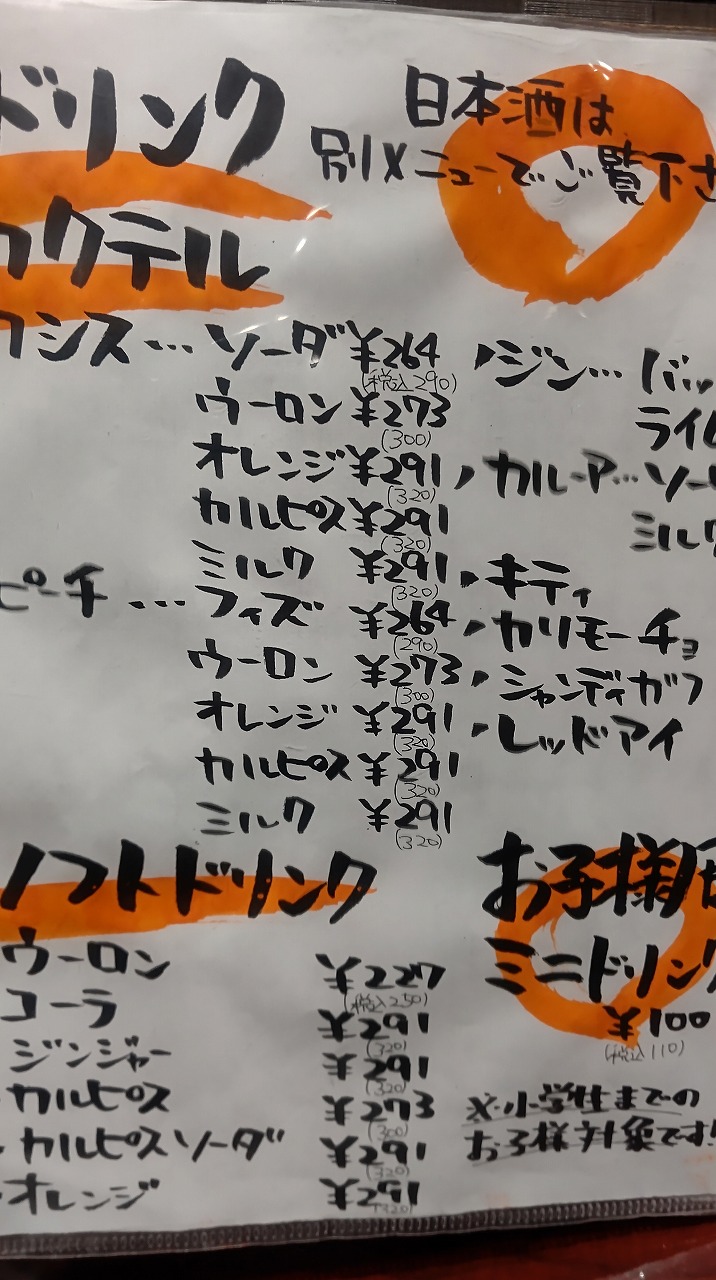 ドリンク
日本酒は
別メニューでご覧下さ
カクテル
カシス…ソーダ ¥264
(税込290)
ウーロン ¥273
(300)
オレンジ ¥291
(320)
カルピス ¥291
(320)
ミルク ¥291
(320)
ピーチ…フィズ ¥264
(290)
ウーロン ¥273
(300)
オレンジ ¥291
(320)
カルピス ¥291
(320)
ミルク ¥291
(320)
ジン…バッ
ライム
カルーア…ソー
ミルク
キティ
カリモーチョ
シャンディガフ
レッドアイ
ソフトドリンク
ウーロン ¥227
(税込250)
コーラ ¥291
(320)
ジンジャー ¥291
(320)
カルピス ¥273
(300)
カルピスソーダ ¥291
(320)
オレンジ ¥291
(320)
お子様用
ミニドリンク
¥100
(税込110)
※小学生までの
お子様対象です!